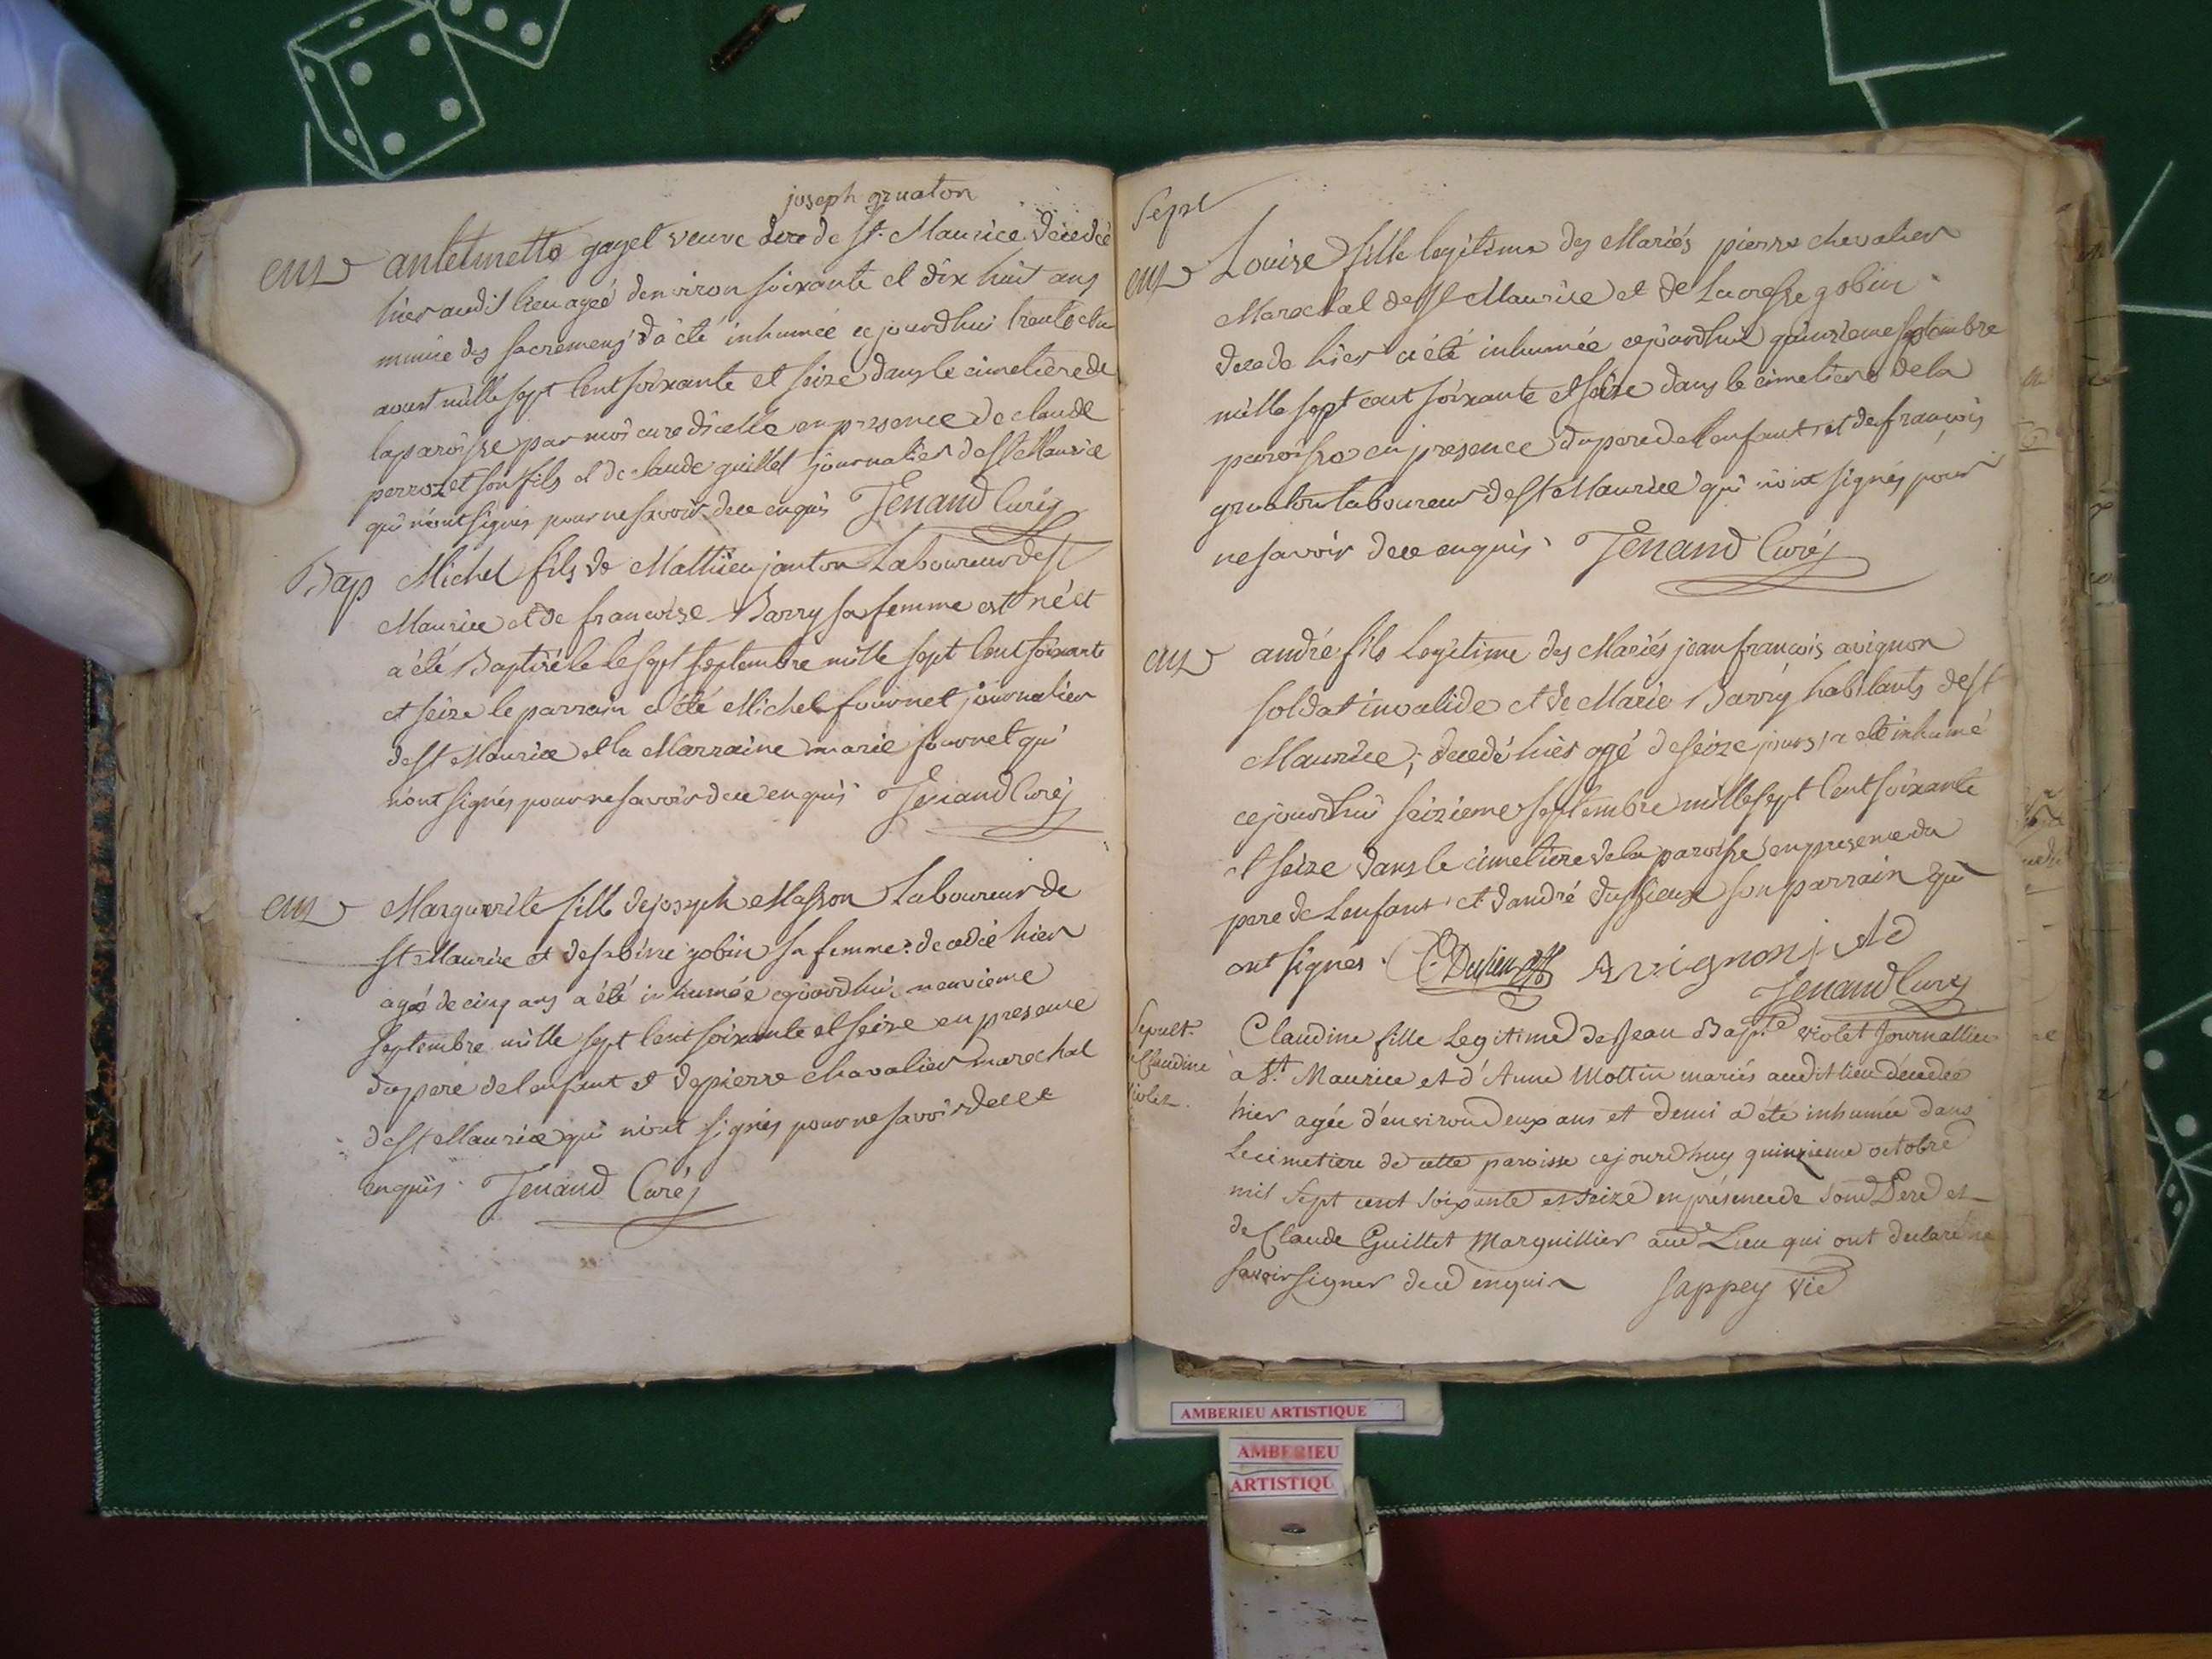 joseph gruaton
ens antelmette gayet veuve de st. Maurice decedée
hier audit lieu ageé d'environ soixante et dix huit ans
munie des sacremens a été inhumée ce jourdhui trente et un
aoust mille sept cent soixante et seize dans le cimetiere de
la paroisse par moi curé d'icelle en presence de claude
perrozet son fils et de claude guillet journalier de st Maurice
qui n'ont signés pour ne savoir de ce enquis Tenand Curé
Bap Michel fils de Mathieu janton Laboureur de st
Maurice et de francoise Barry sa femme est né et
a été Baptisé le sept septembre mille sept cent soixante
et seize le parrain a été Michel fournet journalier
de st Maurice et la Marraine marie fournet qui
n'ont signés pour ne savoir de ce enquis Tenand Curé
ens Marguerite fille de joseph Masson Laboureur de
st Maurice et de sabine gobin sa femme decedée hier
ageé de cinq ans a été inhumée cejourdhui neuvieme
septembre mille sept cent soixante et seize en presence
du pere de l'enfant et de pierre chavalier marechal
de st Maurice qui n'ont signés pour ne savoir de ce
enquis Tenand Curé
sept
ens Louise fille legitime des Mariés pierre chevalier
Marechal de st Maurice et de Lucresse gobin
decede hier a été inhumée cejourdhui quinzieme septembre
mille sept cent soixante et seize dans le cimetiere de la
paroisse en presence du pere de l'enfant et de françois
gruaton laboureur de st Maurice qui n'ont signés pour
ne savoir de ce enquis Tenand Curé
ens andré fils Legitime des Mariés jean françois avignon
soldat invalide et de Marie Barry habitants de st
Maurice, decedé hier agé de seize jours a eté inhumé
cejourdhui seizieme septembre mille sept cent soixante
et seize dans le cimetiere de la paroisse en presence du
pere de L'enfant et d'andré dussieux son parrain qui
ont signés. Avignon
Tenand Curé
Sepult. Claudine fille Legitime de Jean Bapte violet Journallier
Claudine à St. Maurice et d'Anne Mottin mariés audit lieu décedée
violet. hier agée d'environ deux ans et demi a été inhumée dans
Le cimetiere de cette paroisse cejourd'huy quinzieme octobre
mil sept cent soixante et seize en présence de son Pere et
de Claude Guillet Marguillier aud Lieu qui ont declaré ne
savoir signer de ce enquis Sappey vic
AMBERIEU ARTISTIQUE
AMBERIEU
ARTISTIQU